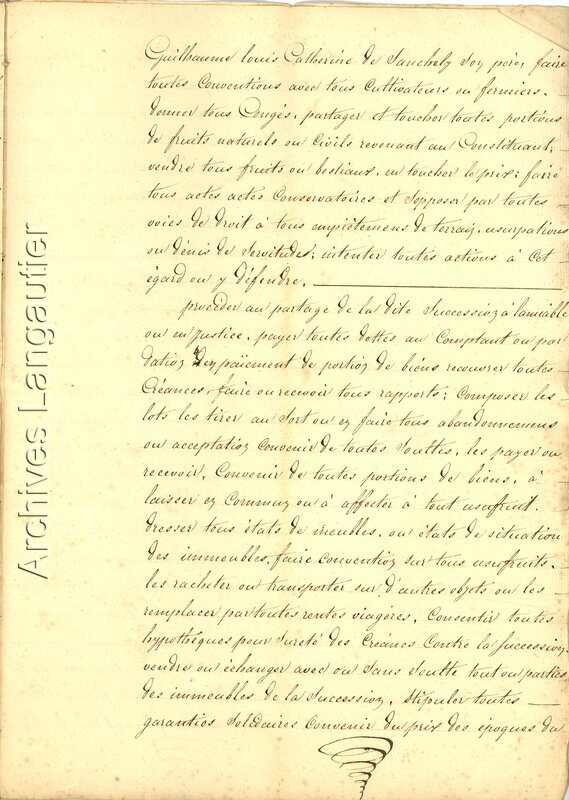 Guilhaume Louis Catherine de Sanchely son père, faire
toutes Conventions avec tous Cultivateurs ou fermiers.
donner tous Congés, partager et toucher toutes portions
de fruits naturels ou Civils revenant au Constituant;
vendre tous fruits ou bestiaux, en toucher le prix; faire
tous actes actes Conservatoires et s'opposer par toutes
voies de droit à tous empiètemens de terrain, usurpations
ou dénis de Servitudes; intenter toutes actions à cet
égard ou y défendre.
procéder au partage de la dite Succession à l'amiable
ou en justice, payer toutes dettes au Comptant ou par
dation en paiement de portion de biens recouvrer toutes
Créances, faire ou recevoir tous rapports; Composer les
lots les tirer au Sort ou en faire tous abandonnemens
ou acceptation Convenir de toutes Soultes, les payer ou
recevoir, Convenir de toutes portions de biens, à
laisser en Commun ou à affecter à tout usufruit.
dresser tous états de meubles, ou états de situation
des immeubles, faire convention sur tous usufruits.
les racheter ou transporter sur d'autres objets ou les
remplacer par toutes rentes viagères, Consentir toutes
hypothéques pour Sureté des Créances Contre la Succession
vendre ou échanger avec ou Sans Soulte tout ou parties
des immeubles de la Succession, Stipuler toutes
garanties Solidaires Convenir du prix des époques du
Archives Langautier